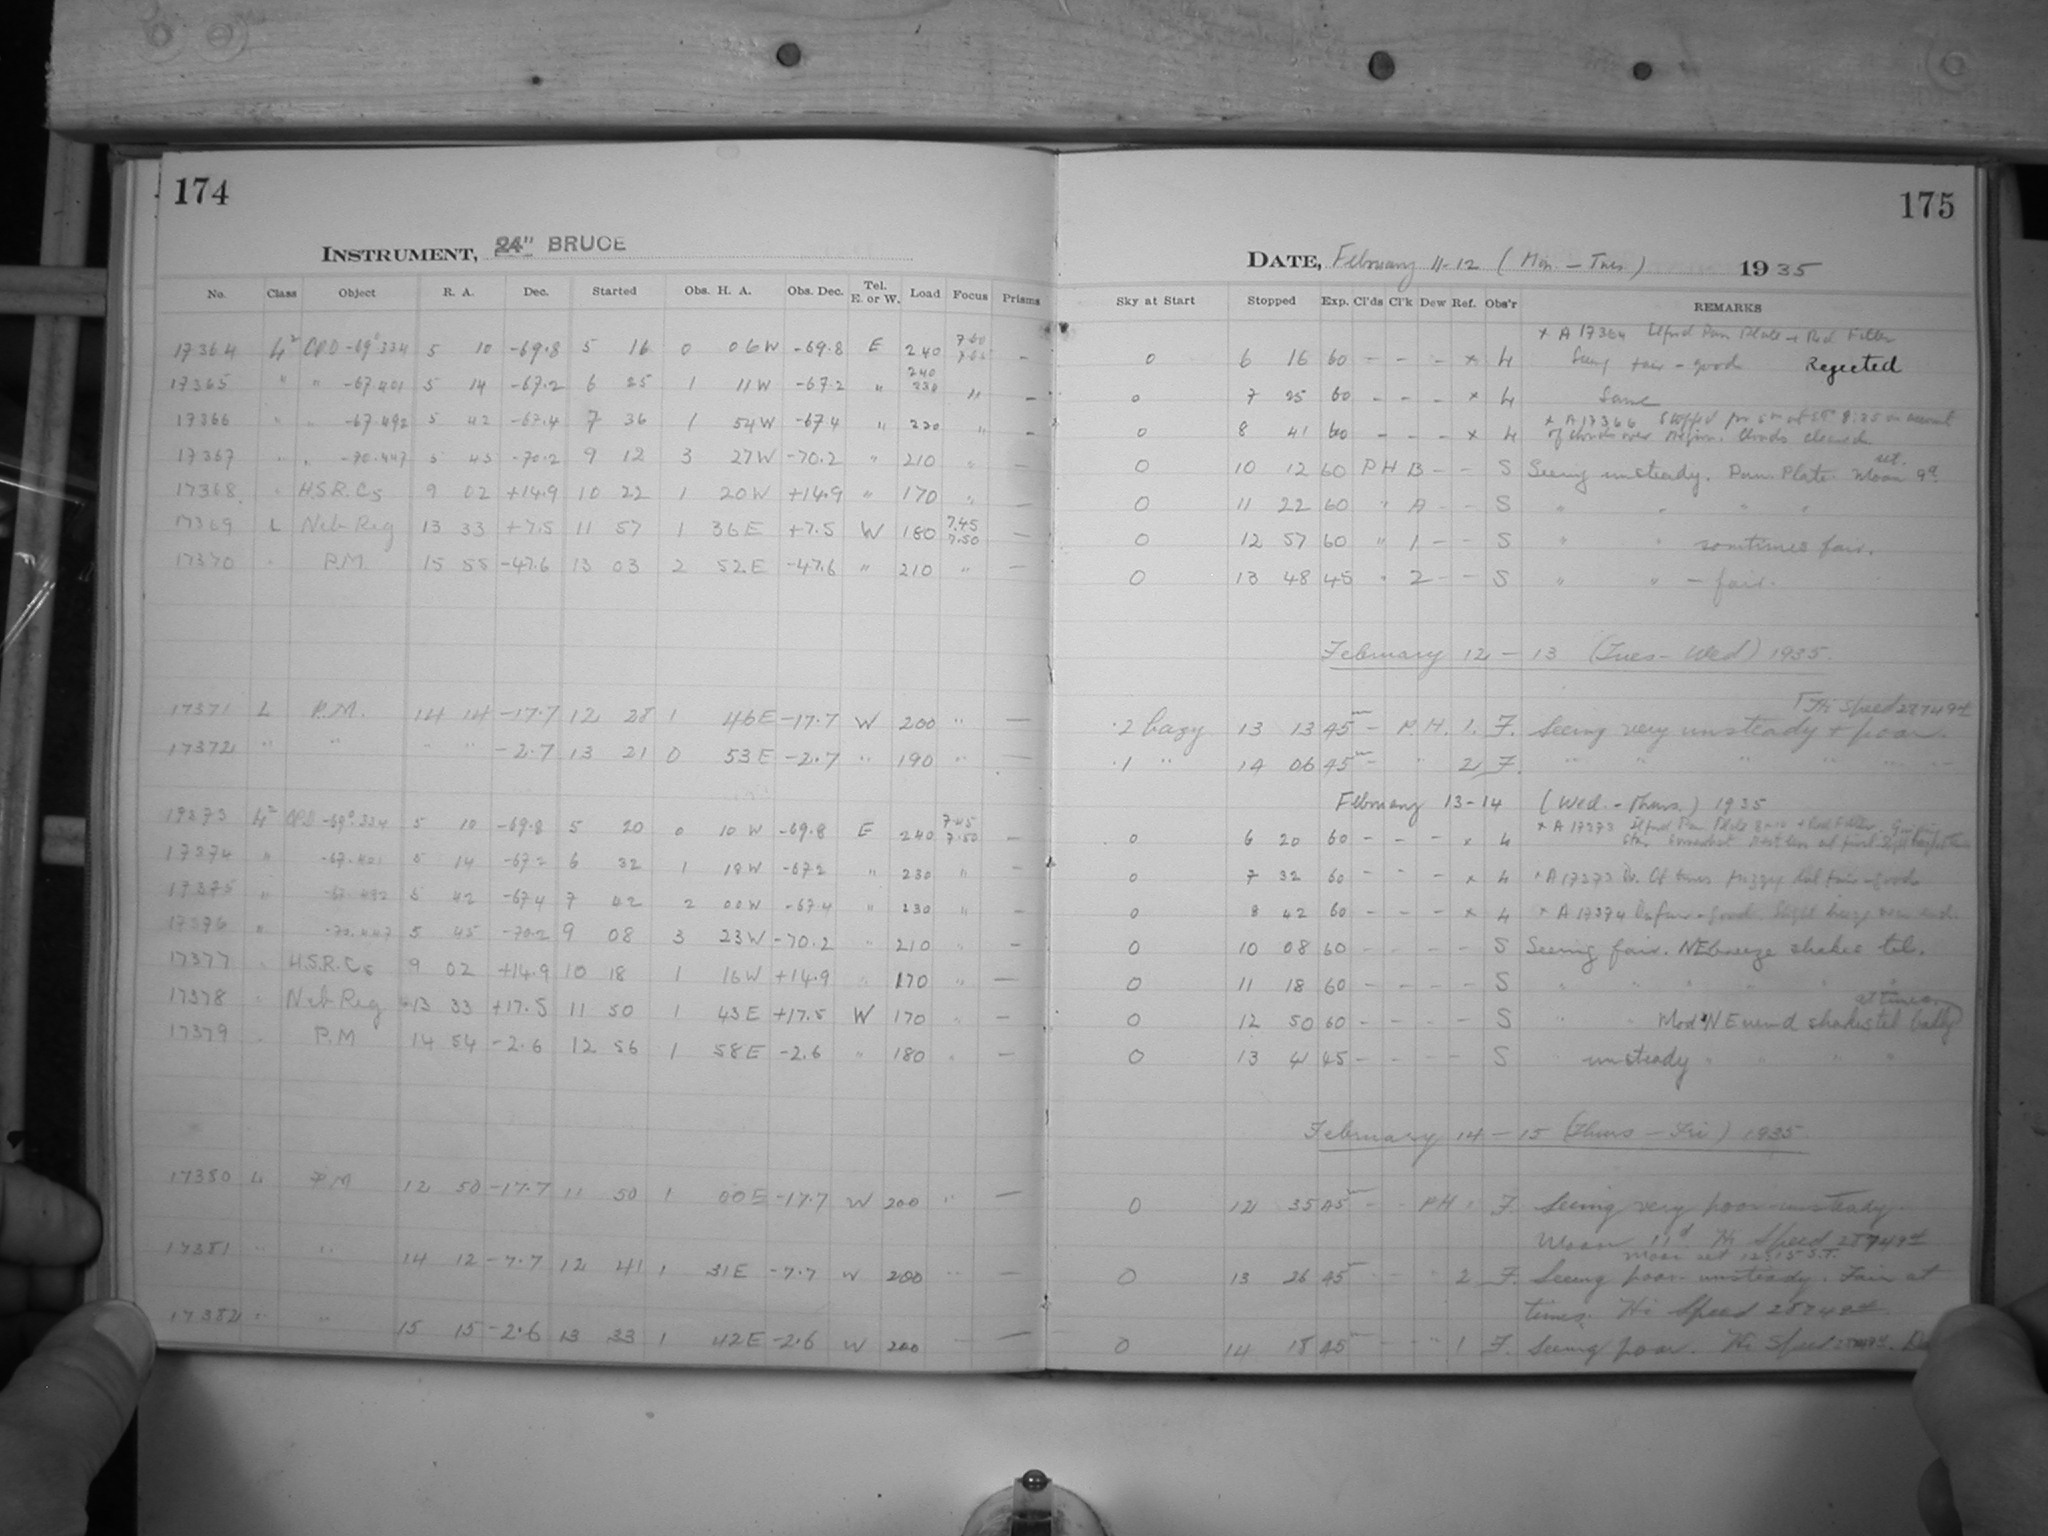 174
INSTRUMENT, 24" BRUCE
No. Class Object R. A. Dec. Started Obs. H. A. Obs. Dec. Tel. E. or W. Load Focus Prisms
17364 L² CPD -69°334 5 10 -69.8 5 16 0 06W -69.8 E 240 7.60 –
17365 " " -67.401 5 14 -67.2 6 25 1 11W -67.2 " 240 230 " –
17366 " " -67.492 5 42 -67.4 7 36 1 54W -67.4 " 220 " –
17367 " " -70.447 5 45 -70.2 9 12 3 27W -70.2 " 210 " –
17368 " H.S.R.C5 9 02 +14.9 10 22 1 20W +14.9 " 170 " –
17369 L Neb Reg 13 33 +7.5 11 57 1 36E +7.5 W 180 7.45 7.50 –
17370 " P.M. 15 55 -47.6 13 03 2 52E -47.6 " 210 " –
17371 L P.M. 14 14 -17.7 12 28 1 46E -17.7 W 200 " –
17372 " " " " -2.7 13 21 0 53E -2.7 " 190 " –
19373 L² CPD -69°334 5 10 -69.8 5 20 0 10W -69.8 E 240 7.45 7.50 –
17374 " -67.401 5 14 -67.2 6 32 1 18W -67.2 " 230 " –
17375 " -67.492 5 42 -67.4 7 42 2 00W -67.4 " 230 " –
17376 " -70.447 5 45 -70.2 9 08 3 23W -70.2 " 210 " –
17377 " H.S.R.C5 9 02 +14.9 10 18 1 16W +14.9 " 170 " –
17378 " Neb Reg 13 33 +17.5 11 50 1 43E +17.5 W 170 " –
17379 " P.M 14 54 -2.6 12 56 1 58E -2.6 " 180 " –
17380 L P.M 12 50 -17.7 11 50 1 00E -17.7 W 200 " –
17381 " " 14 12 -7.7 12 41 1 31E -7.7 W 200 " –
17382 " " 15 15 -2.6 13 33 1 42E -2.6 W 200 –
175
DATE, February 11-12 (Mon. – Tues.) 1935
Sky at Start Stopped Exp. Cl'ds Cl'k Dew Ref. Obs'r REMARKS
x A 17364 Ilford Pan Plate + Red Filter
0 6 16 60 – – – x L Seeing fair – good Rejected
0 7 25 60 – – – x L Same
x A 17366 Stopped for 5m at ST 8:25 on account
0 8 41 60 – – – x L of clouds over region. Clouds cleared
0 10 12 60 P H B – – S Seeing unsteady. Pan. Plate. Moon 9d set.
0 11 22 60 " A – – S " " " "
0 12 57 60 " 1 – – S " " somtimes fair.
0 13 48 45 " 2 – – S " " – fair.
February 12 – 13 (Tues – Wed) 1935.
Hi Speed 28749
.2 hazy 13 13 45m – P.H. 1. F. Seeing very unsteady + poor.
.1 " 14 06 45m – " 2 F. " " " "
February 13-14 (Wed. – Thurs.) 1935
0 6 20 60 – – – x L
0 7 32 60 – – – x L
0 8 42 60 – – – x L
0 10 08 60 – – – – S Seeing fair. NE breeze shakes tel.
0 11 18 60 – – – – S " " " "
at times
0 12 50 60 – – – – S " " Mod NE wind shakes tel badly
0 13 41 45 – – – – S " unsteady " " " "
February 14 – 15 (Thurs – Fri) 1935
0 12 35 45m – PH " F. Seeing very poor – unsteady.
Moon 11d Hi Speed 28749
Moon set 12h15 S.T.
0 13 26 45m 2 F. Seeing poor – unsteady. Fair at
times. Hi Speed 28749
0 14 18 45m 1 F. Seeing poor. Hi Speed